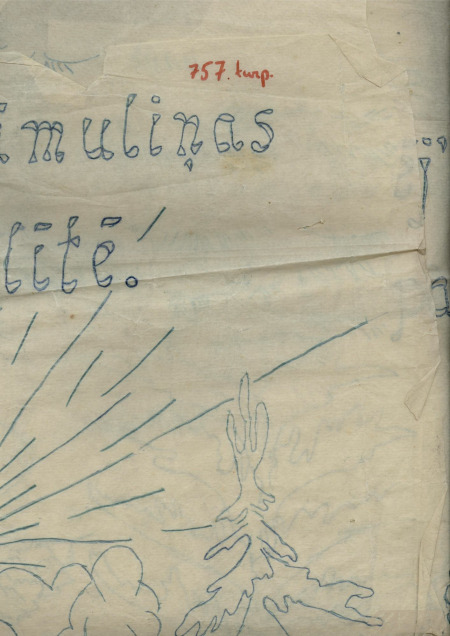 757. turp.
muliņas
lītē!